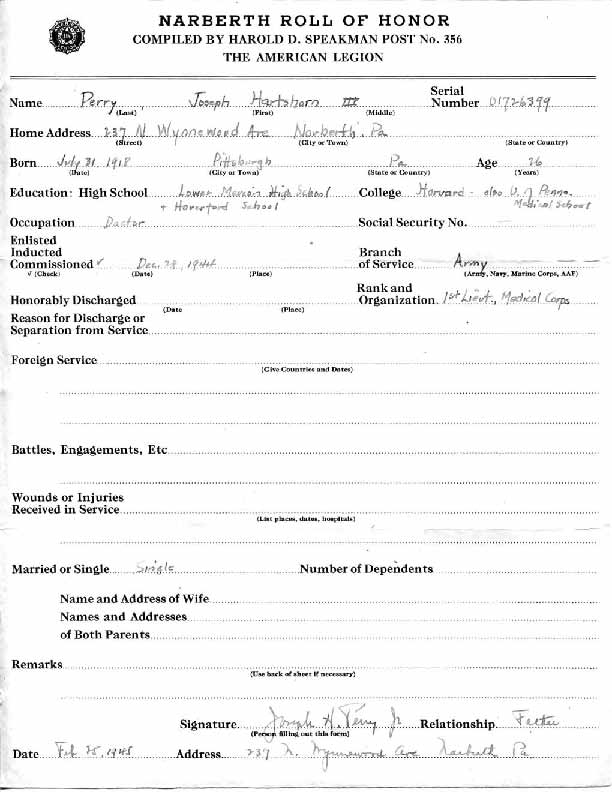 NARBERTH ROLL OF HONOR
COMPILED BY HAROLD D. SPEAKMAN POST No. 356
THE AMERICAN LEGION
Name Perry Joseph Hartshorn III Serial Number 01726399
(Last) (First) (Middle)
Home Address 237 N. Wynnewood Ave Narberth, Pa
(Street) (City or Town) (State or Country)
Born July 31, 1918 Pittsburgh Pa. Age 26
(Date) (City or Town) (State or Country) (Years)
Education: High School Lower Merion High School College Harvard - also U. of Penna.
+ Haverford School Medical School
Occupation Doctor Social Security No. —
Enlisted
Inducted Branch
Commissioned ✓ Dec. 28, 1944 of Service Army
√ (Check) (Date) (Place) (Army, Navy, Marine Corps, AAF)
Rank and
Honorably Discharged Organization 1st Lieut., Medical Corps
(Date (Place)
Reason for Discharge or
Separation from Service
Foreign Service
(Give Countries and Dates)
Battles, Engagements, Etc
Wounds or Injuries
Received in Service
(List places, dates, hospitals)
Married or Single Single Number of Dependents
Name and Address of Wife
Names and Addresses
of Both Parents
Remarks
(Use back of sheet if necessary)
Signature Joseph H. Perry Jr Relationship Father
(Person filling out this form)
Date Feb 25, 1945 Address 237 N. Wynnewood Ave Narberth Pa